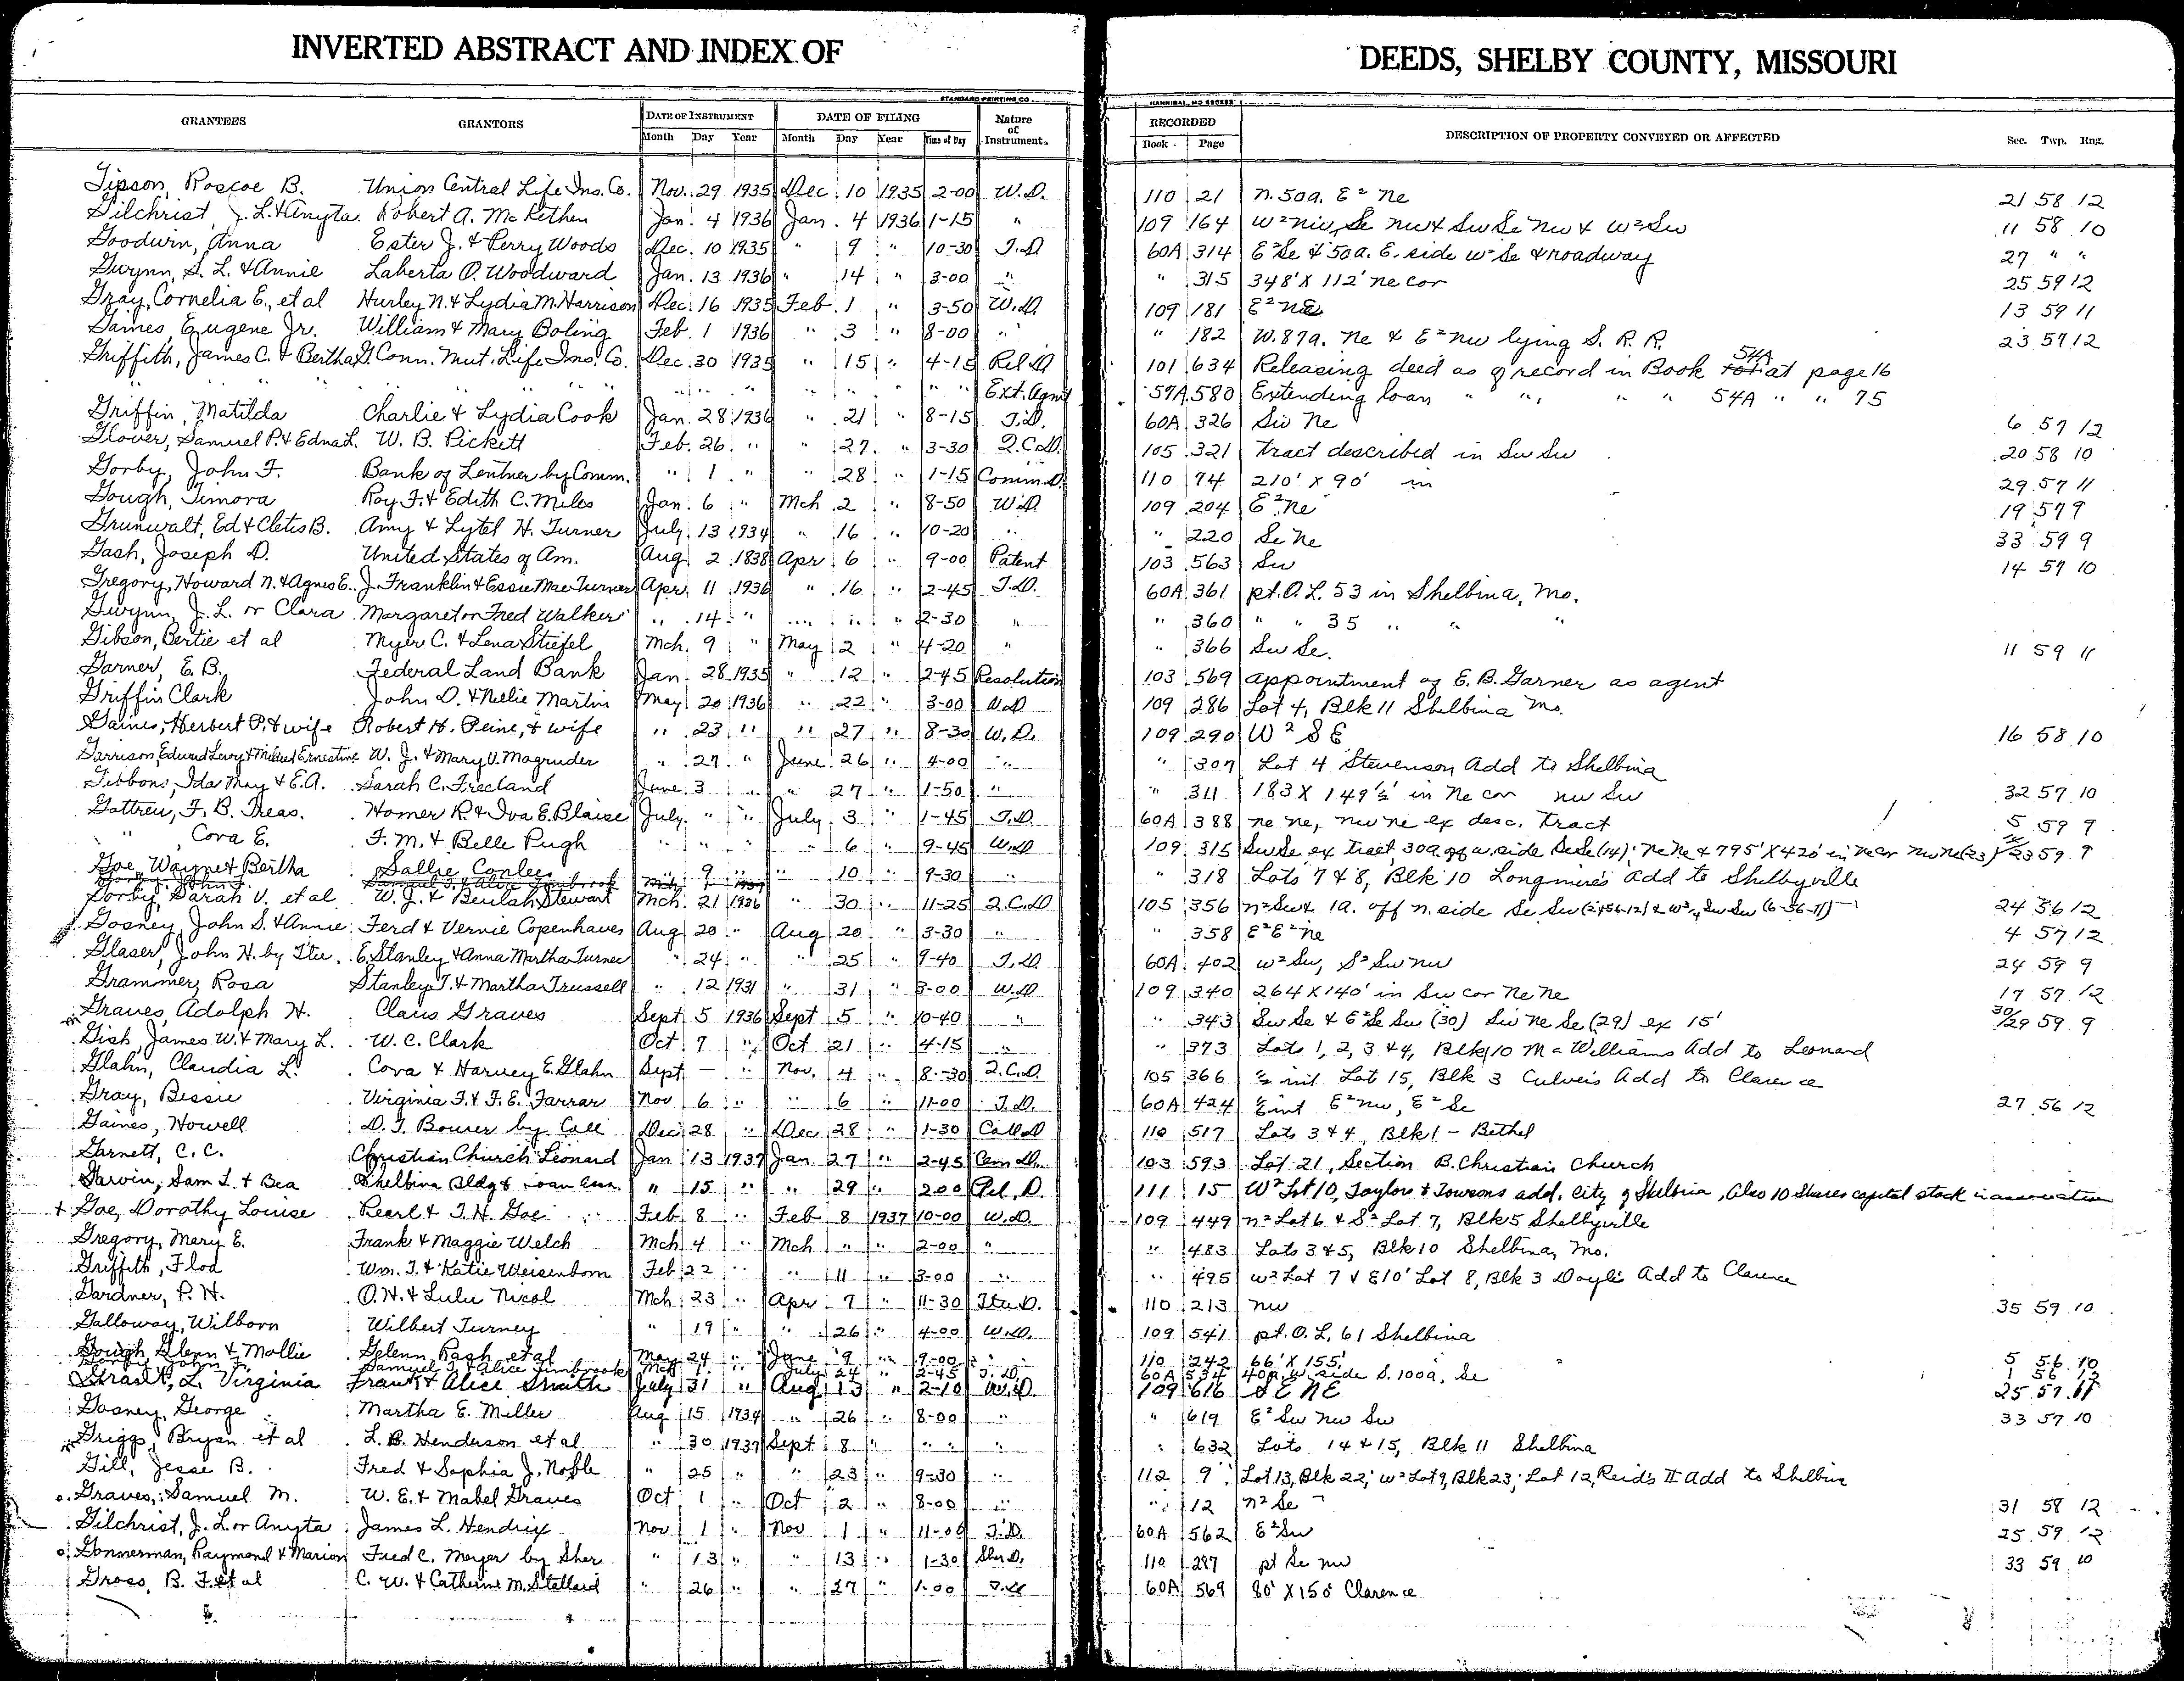 INVERTED ABSTRACT AND INDEX OF DEEDS, SHELBY COUNTY, MISSOURI
STANDARD PRINTING CO. HANNIBAL, MO
GRANTEES GRANTORS DATE OF INSTRUMENT DATE OF FILING Nature of Instrument. RECORDED DESCRIPTION OF PROPERTY CONVEYED OR AFFECTED Sec. Twp. Rng.
Month Day Year Month Day Year Time of Day Book Page
Gipson, Roscoe B. Union Central Life Ins. Co. Nov. 29 1935 Dec. 10 1935 2-00 W.D. 110 21 N. 50a. E² Ne 21 58 12
Gilchrist, J. L. & Anyta Robert A. McKethen Jan. 4 1936 Jan. 4 1936 1-15 " 109 164 W² Nw, Se Nw & Sw Se Nw & W² Sw 11 58 10
Goodwin, Anna Ester J. & Perry Woods Dec. 10 1935 " 9 " 10-30 T.D 60A 314 E² Se & 50a. E. side W² Se & roadway 27 " "
Gwynn, S. L. & Annie Laberta O. Woodward Jan. 13 1936 " 14 " 3-00 " " 315 348' X 112' Ne cor 25 59 12
Gray, Cornelia E., et al Hurley N. & Lydia M. Harrison Dec. 16 1935 Feb. 1 " 3-50 W.D. 109 181 E² NE 13 59 11
Gaines, Eugene Jr. William & Mary Boling Feb. 1 1936 " 3 " 8-00 " " 182 W. 87a. Ne & E² Nw lying S. R. R. 23 57 12
Griffith, James C. & Bertha G. Conn. Mut. Life Ins. Co. Dec. 30 1935 " 15 " 4-15 Rel D. 101 634 Releasing deed as of record in Book 54A at page 16
" " " " " " " " " " " " " Ext. Agmt 57A 580 Extending loan " " " " 54A " " 75
Griffin, Matilda Charlie & Lydia Cook Jan. 28 1936 " 21 " 8-15 T.D. 60A 326 Sw Ne 6 57 12
Glover, Samuel P. & Edna L. W. B. Pickett Feb. 26 " " 27 " 3-30 Q.C.D. 105 321 tract described in Sw Sw 20 58 10
Gorby, John F. Bank of Lentner by Comm. " 1 " " 28 " 1-15 Comm D. 110 74 210' X 90' in 29 57 11
Gough, Timora Roy F. & Edith C. Miles Jan. 6 " Mch 2 " 8-50 W.D. 109 204 E² Ne 19 57 9
Grunwalt, Ed & Cletis B. Amy & Lytel H. Turner July 13 1934 " 16 " 10-20 " " 220 Se Ne 33 59 9
Gash, Joseph D. United States of Am. Aug 2 1838 Apr 6 " 9-00 Patent 103 563 Sw 14 57 10
Gregory, Howard N. & Agnes E. J. Franklin & Essie Mae Turner Apr. 11 1936 " 16 " 2-45 T.D. 60A 361 pt. O.L. 53 in Shelbina, Mo.
Gwynn, J. L. or Clara Margaret or Fred Walker " 14 " " " " 2-30 " " 360 " " 35 " " "
Gibson, Bertie et al Myer C. & Lena Stiefel Mch. 9 " May 2 " 4-20 " " 366 Sw Se. 11 59 11
Garner, E. B. Federal Land Bank Jan 28 1935 " 12 " 2-45 Resolution 103 569 appointment of E. B. Garner as agent
Griffin Clark John D. & Nelie Martin May 20 1936 " 22 " 3-00 W.D 109 286 Lot 4, Blk 11 Shelbina Mo.
Gaines, Herbert P. & wife Robert H. Peine, & wife " 23 " " 27 " 8-30 W.D. 109 290 W² S E 16 58 10
Garrison, Edward Levy & Mildred Ernestine W. J. & Mary V. Magruder " 27 " June 26 " 4-00 " " 307 Lot 4 Stevenson Add to Shelbina
Gibbons, Ida May & E.A. Sarah C. Freeland June 3 " " 27 " 1-50 " " 311 183 X 149½' in Ne cor Nw Sw 32 57 10
Gottreu, F. B. Treas. Homer R. & Iva E. Blaise July " " July 3 " 1-45 T.D. 60A 388 Ne Ne, Nw Ne ex desc. tract 5 59 9
" Cora E. F. M. & Belle Pugh " " " " 6 " 9-45 W.D 109 315 Sw Se ex tract, 30a. off w. side Se Se (14); Ne Ne & 795' X 420' in Ne cor Nw Ne (23) 14/23 59 9
Goe, Wayne & Bertha Sallie Conlee " 9 " " 10 " 9-30 " " 318 Lots 7 & 8, Blk 10 Longmire's Add to Shelbyville
Gorby, Sarah V. et al W. J. & Beulah Stewart Mch. 21 1936 " 30 " 11-25 Q.C.D 105 356 N² Sw & 1a. off N. side Se Sw (24-56-12) & W¾ Sw Sw (6-56-11) 24 56 12
Gosney, John S. & Annie Ferd & Vernie Copenhaver Aug 20 " Aug 20 " 3-30 " " 358 E² E² Ne 4 57 12
Glaser, John H. by Stu. E. Stanley & Anna Martha Turner " 24 " " 25 " 9-40 T.D 60A 402 W² Sw, S² Sw Nw 24 59 9
Grammer, Rosa Stanley T. & Martha Trussell " 12 1931 " 31 " 3-00 W.D 109 340 264 X 140' in Sw cor Ne Ne 17 57 12
Graves, Adolph H. Claus Graves Sept 5 1936 Sept 5 " 10-40 " " 343 Sw Se & E² Se Sw (30) Sw Ne Se (29) ex 15' 30/29 59 9
Gish, James W. & Mary L. W. C. Clark Oct 7 " Oct 21 " 4-15 " " 373 Lots 1, 2, 3 & 4, Blk 10 McWilliams Add to Leonard
Glahn, Claudia L. Cora & Harvey E. Glahn Sept — " Nov. 4 " 8-30 Q.C.D. 105 366 ½ int Lot 15, Blk 3 Culvers Add to Clarence
Gray, Bessie Virginia F. & F. E. Farrar Nov 6 " " 6 " 11-00 T.D. 60A 424 int E² Nw, E² Se 27 56 12
Gaines, Howell D. T. Bower by Coll Dec 28 " Dec 28 " 1-30 Coll D 110 517 Lots 3 & 4, Blk 1 - Bethel
Garnett, C. C. Christian Church Leonard Jan 13 1937 Jan 27 " 2-45 Cem D. 103 593 Lot 21, Section B. Christian Church
Garvin, Sam L. & Bea Shelbina Bldg & Loan Assn. " 15 " " 29 " 2 00 Rel. D. 111 15 W² Lot 10, Taylors & Towsons add. City of Shelbina, Also 10 Shares capital stock in association
+ Goe, Dorothy Louise Pearl & T. H. Goe Feb 8 " Feb 8 1937 10-00 W.D. 109 449 N² Lot 6 & S² Lot 7, Blk 5 Shelbyville
Gregory, Mary E. Frank & Maggie Welch Mch 4 " Mch " " 2-00 " " 483 Lots 3 & 5, Blk 10 Shelbina, Mo.
Griffith, Flod Wm. T. & Katie Weisenborn Feb 22 " " 11 " 3-00 " " 495 W² Lot 7 & E10' Lot 8, Blk 3 Doyle's Add to Clarence
Gardner, P. H. O. H. & Lulu Nicol Mch 23 " Apr 7 " 11-30 Stu D. 110 213 Nw 35 59 10
Galloway, Wilborn Wilbert Turney " 19 " " 26 " 4-00 W.D. 109 541 pt. O. L. 61 Shelbina
Gough, Glenn & Mollie Gelenn Rash et al May 24 " June 9 " 9-00 " 110 242 66' X 155' 5 56 10
Gorby, John F. Samuel T. & Alice Timbrook Mch 1 " July 24 " 2-45 T.D. 60A 534 40a. W. side S. 100a. Se 1 56 12
L. Virginia Frank & Alice Smith July 31 " Aug 13 " 2-10 W.D. 109 616 S E N E 25 57 11
Gosney, George Martha E. Miller Aug 15 1934 " 26 " 8-00 " " 619 E² Sw Nw Sw 33 57 10
Griggs, Bryan et al L. B. Henderson et al " 30 1937 Sept 8 " " " " 632 Lots 14 & 15, Blk 11 Shelbina
Gill, Jesse B. Fred & Sophia J. Noble " 25 " " 23 " 9-30 " 112 9 Lot 13, Blk 22; W² Lot 9, Blk 23; Lot 12, Reid's II Add to Shelbina
Graves, Samuel M. W. E. & Mabel Graves Oct 1 " Oct 2 " 8-00 " " 12 N² Se 31 58 12
Gilchrist, J. L. or Anyta James L. Hendrix Nov 1 " Nov 1 " 11-00 T.D. 60A 562 E² Sw 25 59 12
Gonnerman, Raymond & Marion Fred C. Meyer by Sher " 13 " " 13 " 1-30 Sher D. 110 287 pt Se Nw 33 59 10
Gross, B. F. et al C. W. & Catherine M. Stallard " 26 " " 27 " 1-00 T.D 60A 569 80' X 150' Clarence